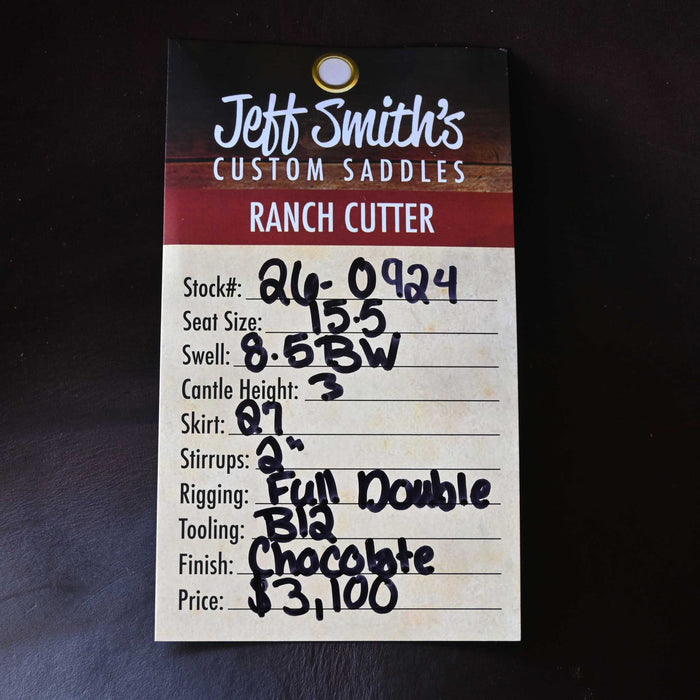 Jeff Smith's
CUSTOM SADDLES
RANCH CUTTER
Stock#: 26-0924
Seat Size: 15.5
Swell: 8.5 BW
Cantle Height: 3
Skirt: 27
Stirrups: 2"
Rigging: Full Double
Tooling: B12
Finish: Chocolate
Price: $3,100